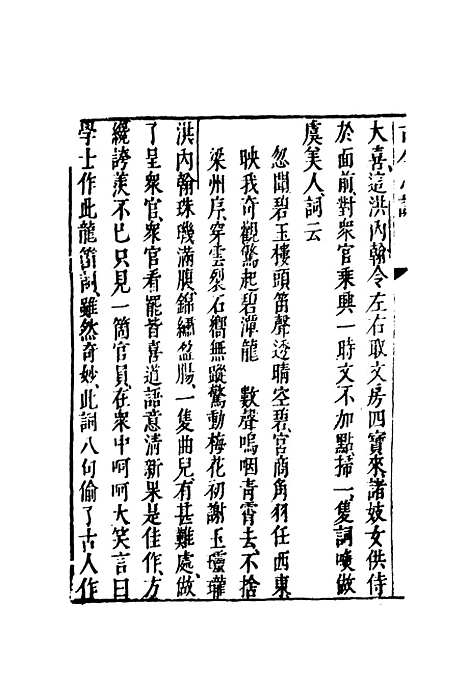 大喜這洪內翰令左右取文房四寶來諸妓女供侍
於面前對衆官乘興一時文不加點掃一隻詞喚做
虞美人詞云
忽聞碧玉樓頭笛聲透晴空碧宫商角羽任西東
映我奇觀驚起碧潭龍 數聲嗚咽青霄去不捨
梁州序穿雲裂石嚮無蹤驚動梅花初謝玉玲瓏
洪內翰珠璣滿腹錦繡盈腸一隻曲兒有甚難處做
了呈衆官衆官看罷皆喜道語意清新果是佳作方
纔誇羨不已只見一箇官員在衆中呵呵大笑言曰
學士作此龍笛詞雖然奇妙此詞八句偷了古人作